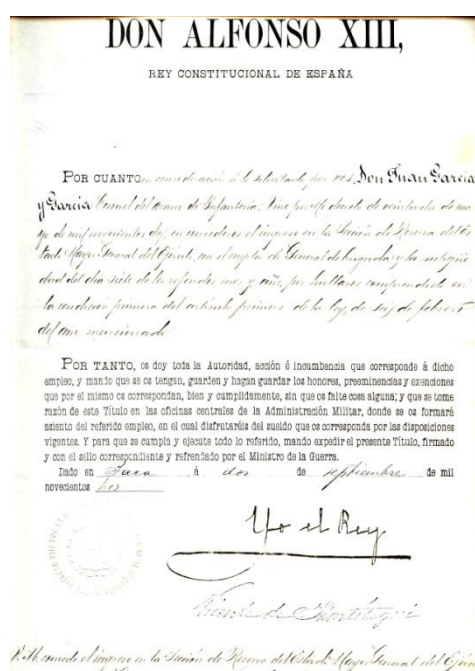 DON ALFONSO XIII,
REY CONSTITUCIONAL DE ESPAÑA
POR CUANTO en consideración á lo solicitado por vos, Don Juan García
y García Coronel del arma de Infantería, Vine por Mi decreto de veintiuno de ma-
yo de mil novecientos dos, en concederos el ingreso en la Sección de Reserva del Es-
tado Mayor General del Ejército, con el empleo de General de brigada y la antigüe-
dad del dia siete de los referidos mes y año, por hallaros comprendido en
la condición primera del artículo primero de la ley de seis de febrero
del año mencionado
POR TANTO, os doy toda la Autoridad, acción é incumbencia que corresponde á dicho
empleo, y mando que se os tengan, guarden y hagan guardar los honores, preeminencias y exenciones
que por el mismo os correspondan, bien y cumplidamente, sin que os falte cosa alguna; y que se tome
razón de este Título en las oficinas centrales de la Administración Militar, donde se os formará
asiento del referido empleo, en el cual disfrutaréis del sueldo que os corresponda por las disposiciones
vigentes. Y para que se cumpla y ejecute todo lo referido, mando expedir el presente Título, firmado
y con el sello correspondiente y refrendado por el Ministro de la Guerra.
Dado en á dos de septiembre de mil
novecientos
Yo el Rey
de
V. M. concede el ingreso en la Sección de Reserva del Estado Mayor General del